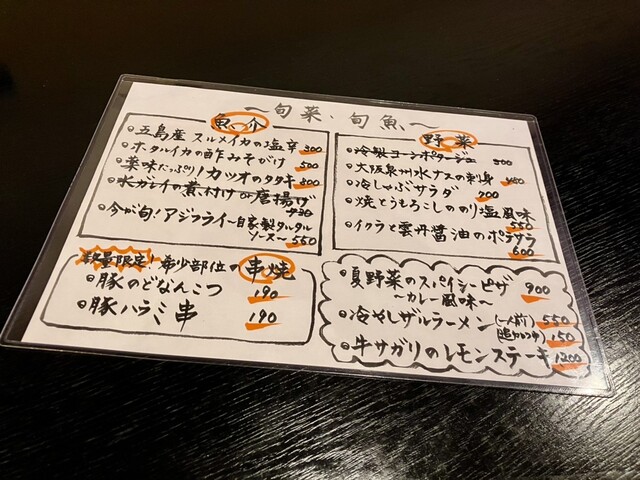 〜旬菜、旬魚〜
魚介
○五島産 スルメイカの塩辛 300
○ホタルイカの酢みそがけ 500
○薬味たっぷり!カツオのタタキ 800
○水ガレイの煮付け or 唐揚げ
○今が旬!アジフライ〜自家製タルタル
ソース〜 550
野菜
○冷製コーンポタージュ 300
○大阪泉州水ナスの刺身
○冷しゃぶサラダ 700
○焼とうもろこしののり塩風味
550
○イクラと雲丹醤油のポテサラ
600
数量限定!希少部位の串焼
○豚のどなんこつ 190
○豚ハラミ串 190
夏野菜のスパイシーピザ 900
〜カレー風味〜
○冷やしザルラーメン(一人前) 550
150
○牛サガリのレモンステーキ 1200